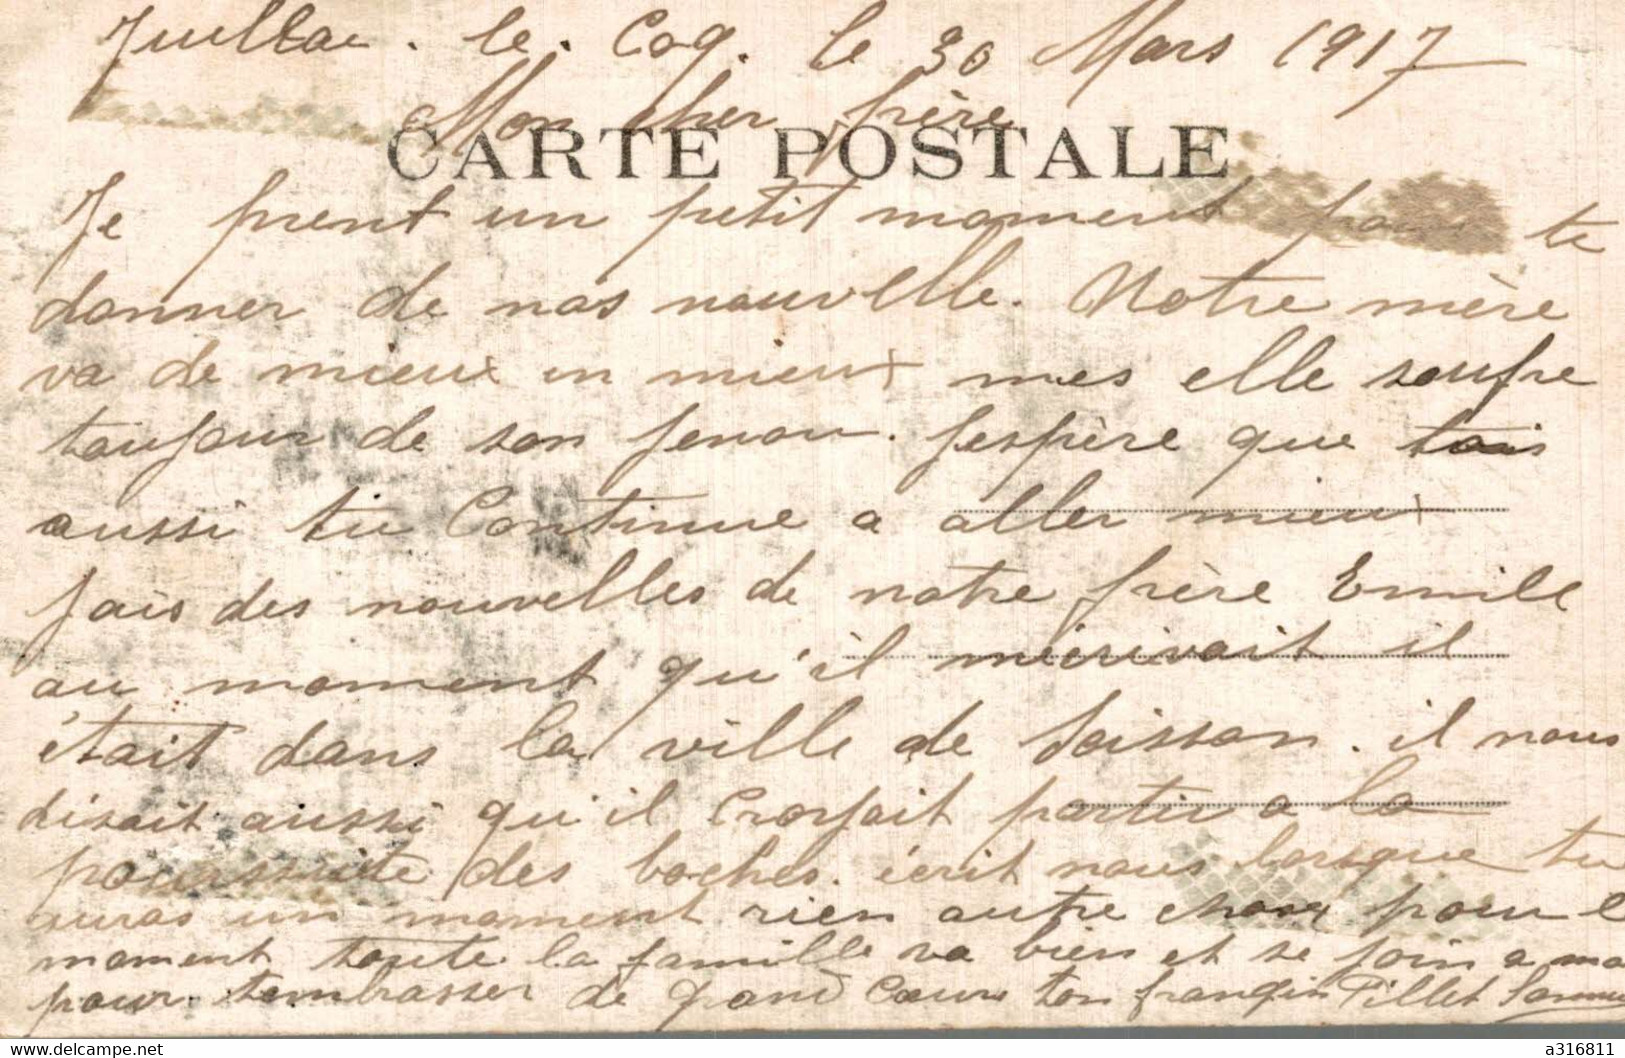 Juillac. le. Coq. le 30 Mars 1917
Mon cher frère
CARTE POSTALE
Je prent un petit moment pour te
donner de nos nouvelle. Notre mère
va de mieux en mieux mes elle soufre
toujour de son jenou. Jespère que tois
aussi tu Continue a aller mieux
jais des nouvelles de notre frère Emile
au moment qu'il mécrivait il
était dans la ville de Soisson. il nous
disait aussi qu'il Croyait partir a la
poursuite des boches. écrit nous lorsque tu
auras un moment rien autre chose pour l
moment toute la famille va bien et se join a moi
pour tembrasser de grand Cœur ton frangin Pillet
a316811